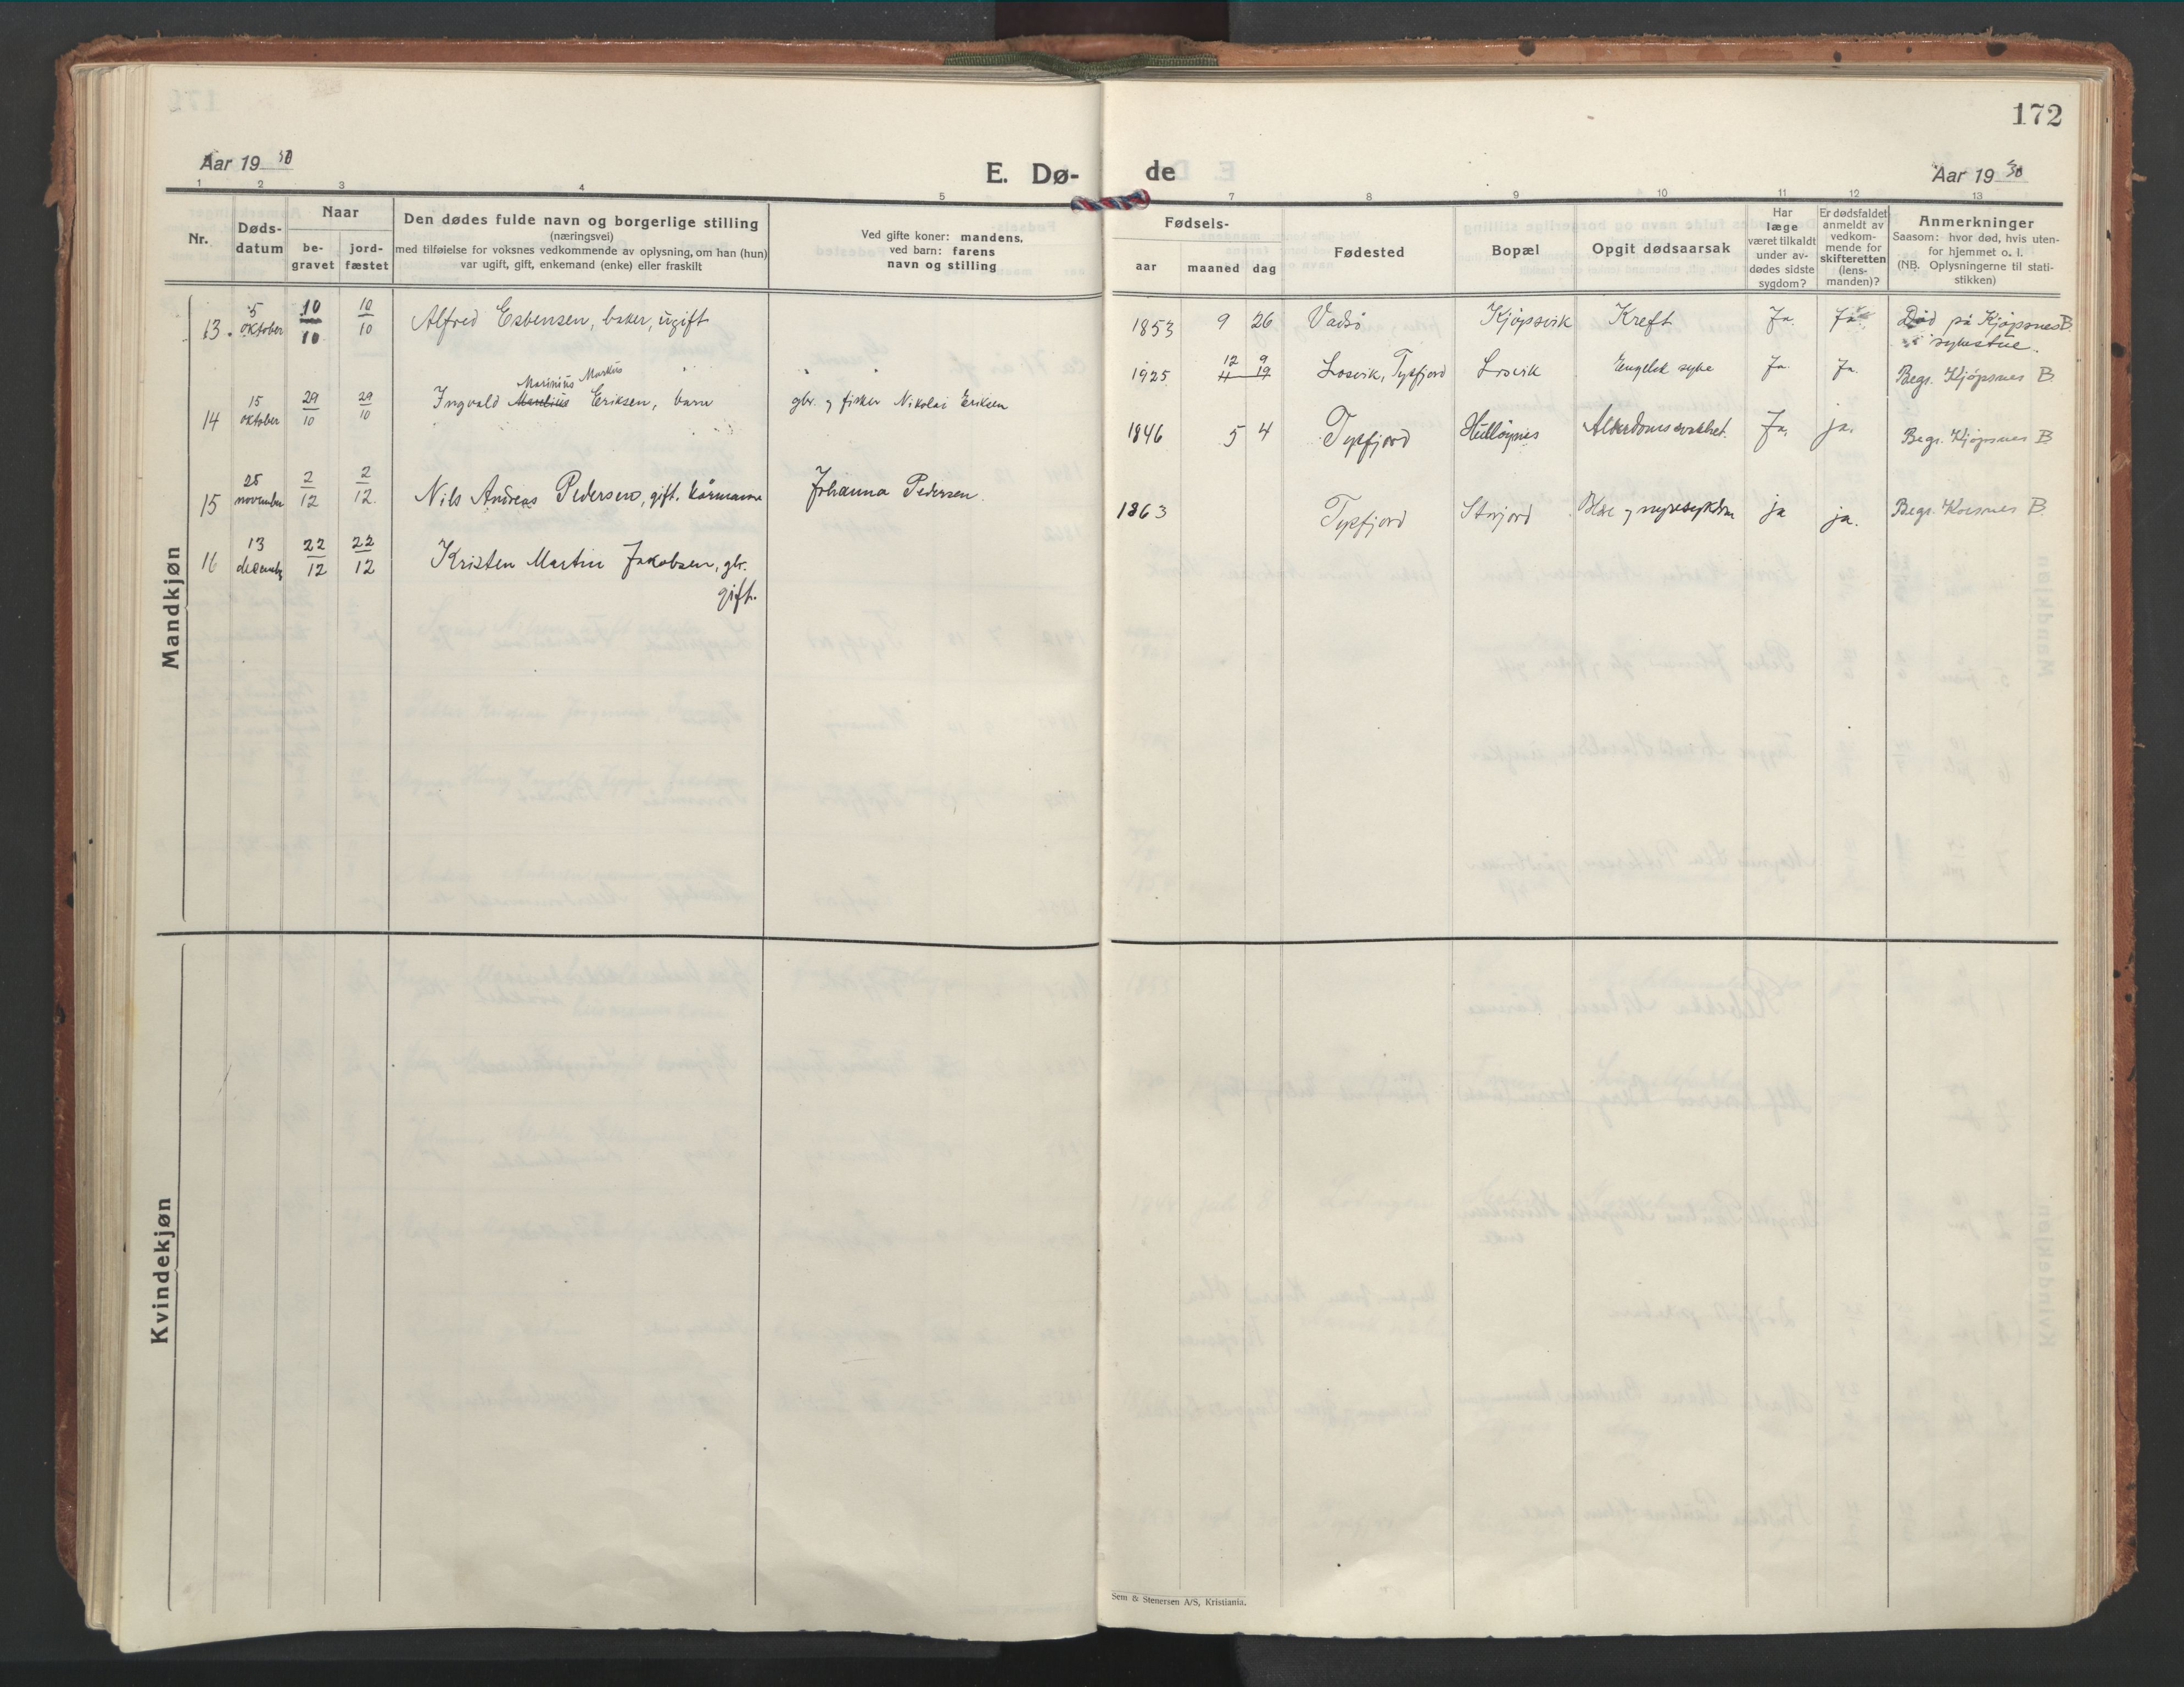 172
Aar 19 30
E. Dø-
de
Aar 19 30
1 2 3 4 5 7 8 9 10 11 12 13
Nr.
Døds-
datum
Naar
be-
gravet
jord-
fæstet
Den dødes fulde navn og borgerlige stilling
(næringsvei)
med tilføielse for voksnes vedkommende av oplysning, om han (hun)
var ugift, gift, enkemand (enke) eller fraskilt
Ved gifte koner: mandens,
ved barn: farens
navn og stilling
Fødsels-
aar maaned dag
Fødested
Bopæl
Opgit dødsaarsak
Har
læge
været tilkaldt
under av-
dødes sidste
sygdom?
Er dødsfaldet
anmeldt av
vedkom-
mende for
skifteretten
(lens-
manden)?
Anmerkninger
Saasom: hvor død, hvis uten-
for hjemmet o. l.
(NB. Oplysningerne til stati-
stikken)
Mandkjøn
13. 5 oktober 10/10 10/10 Alfred Esbensen, baker, ugift
1853 9 26 Vadsø Kjøpsvik Kreft Ja. Ja. Død på Kjøpsnes B.
i sykestue.
Marinius Markus
14 15 oktober 29/10 29/10 Ingvald Eriksen, barn gbr. og fisker Nikolai Eriksen
12 9
1925 11 19 Losvik, Tysfjord Losvik Engelsk syke Ja. Ja. Begr. Kjøpsnes B.
15 25 november 2/12 2/12 Nils Andreas Pedersen, gift. kårmann Johanna Pedersen.
1846 5 4 Tysfjord Hulløynes Alderdomssvakhet. Ja. ja. Begr. Kjøpsnes B.
16 13 decembr 22/12 22/12 Kristen Martin Jakobsen, gbr.
gift.
1863 Tysfjord Storjord Blære og nyresykdom ja ja. Begr. Korsnes B.
Kvindekjøn
Sem & Stenersen A/S, Kristiania.